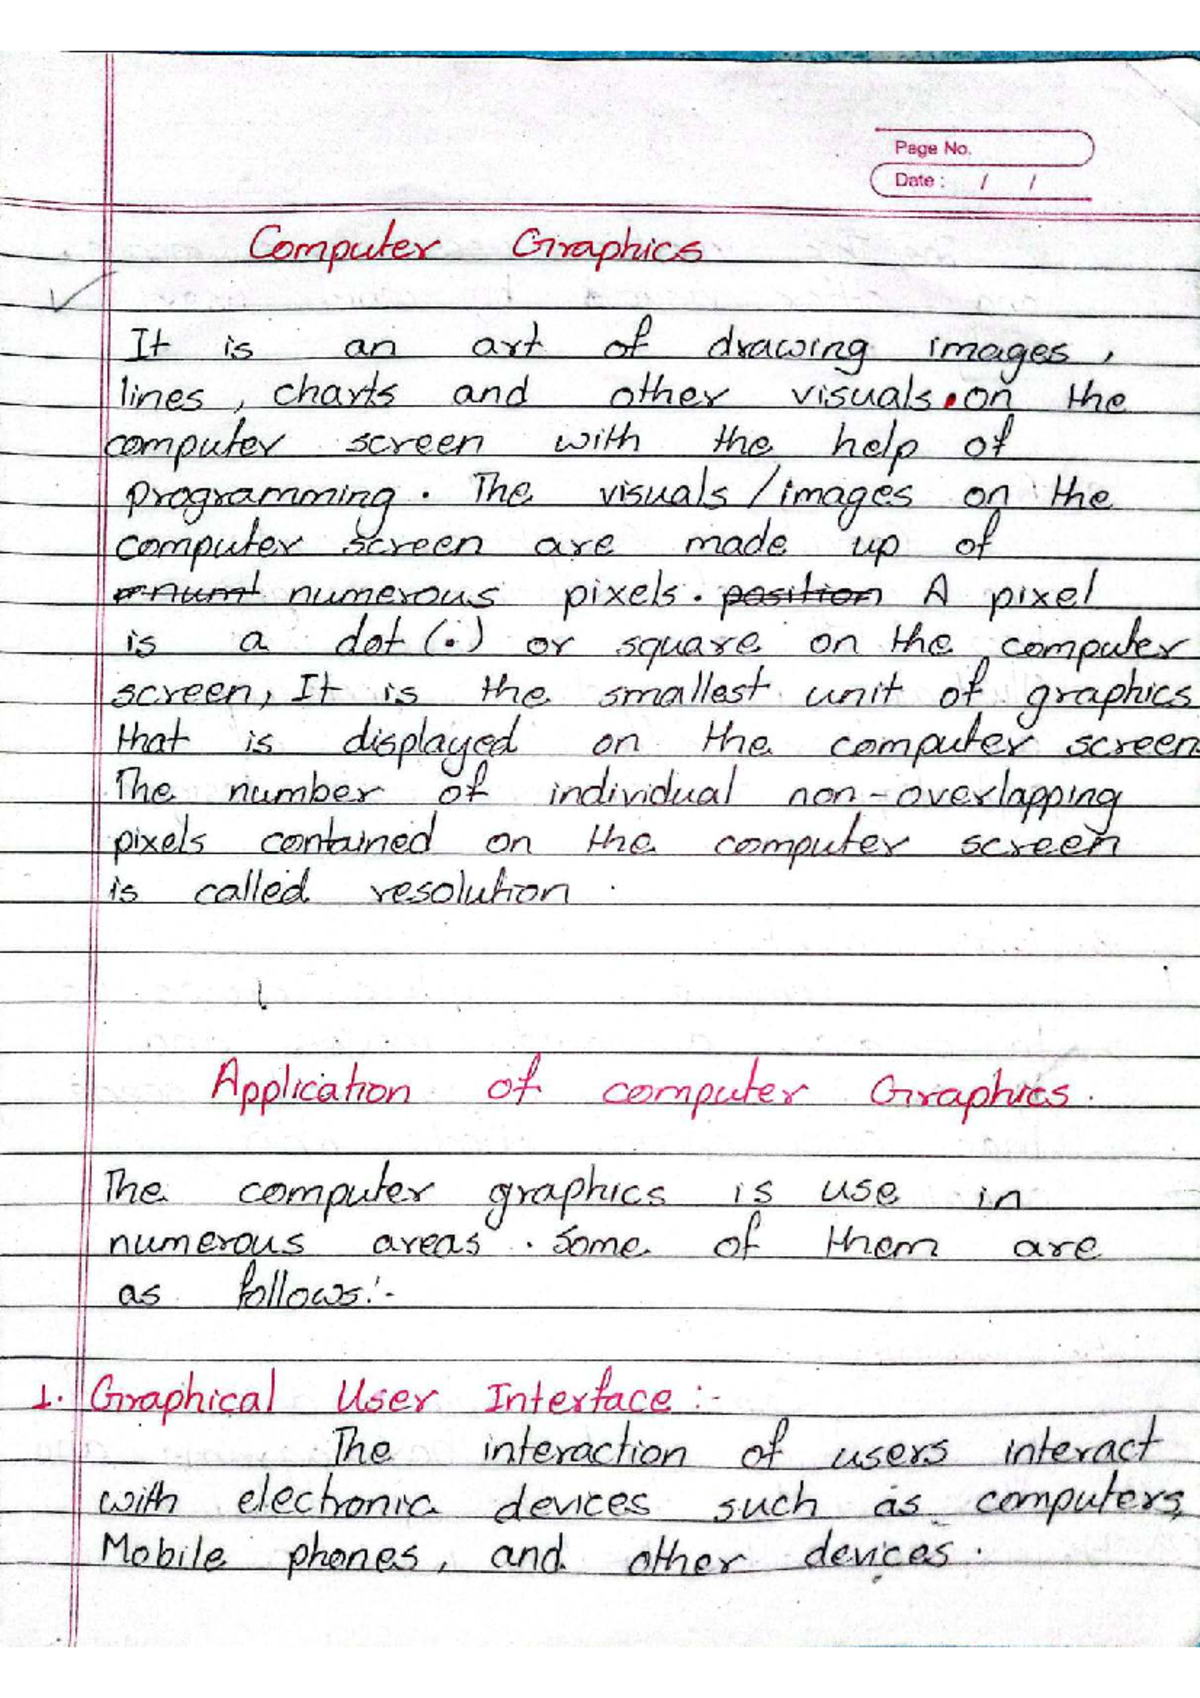 Page No.
Date : / /
Computer Graphics
It is an art of drawing images,
lines, charts and other visuals. on the
computer screen with the help of
programming. The visuals/images on the
computer screen are made up of
numerous pixels. position A pixel
is a dot (.) or square on the computer
screen, It is the smallest unit of graphics
that is displayed on the computer screen.
The number of individual non-overlapping
pixels contained on the computer screen
is called resolution.
Application of computer Graphics.
The computer graphics is use in
numerous areas. Some of them are
as follows:-
1. Graphical User Interface:-
The interaction of users interact
with electronic devices such as computers,
Mobile phones, and other devices.